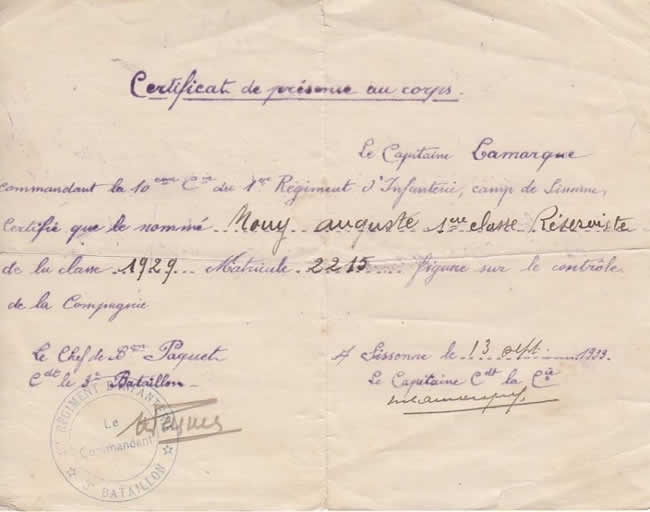 Certificat de présense au corps.
Le Capitaine Lamarque
commandant la 10eme Cie du 1er Régiment d'Infanterie, camp de Sissonne,
Certifie que le nommé Mouy auguste 1ere classe Réserviste
de la classe 1929 Matricule 2215 figure sur le contrôle
de la Compagnie
Le Chef de Bon Paquet
Cdt le 3e Bataillon.
A Sissonne le 13 Sept 1939.
Le Capitaine Cdt la Cie
RÉGIMENT D'INFANTERIE
Le
Commandant
3e BATAILLON